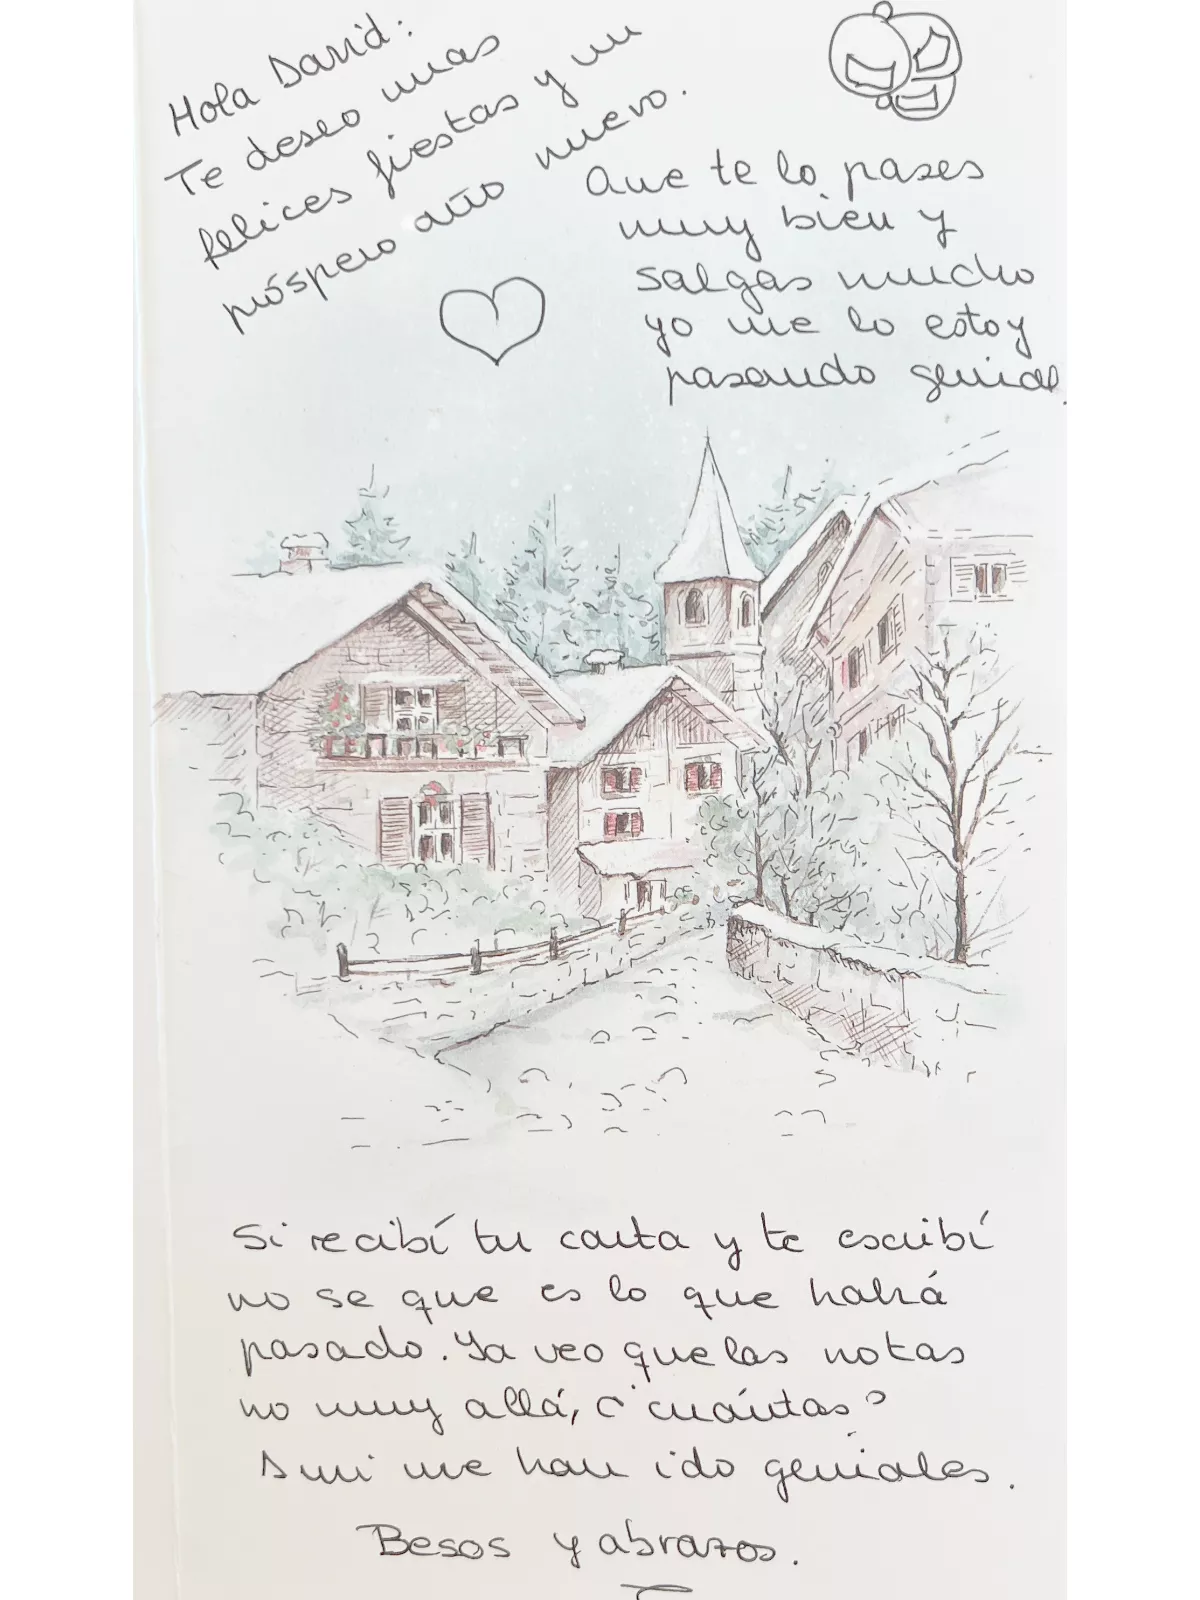 Hola David:
Te deseo unas
felices fiestas y un
próspero año nuevo.
Que te lo pases
muy bien y
salgas mucho
yo me lo estoy
pasando genial.
Si recibí tu carta y te escribí
no se que es lo que habrá
pasado. Ya veo que las notas
no muy allá, ¿cuántas?
A mi me han ido geniales.
Besos y abrazos.